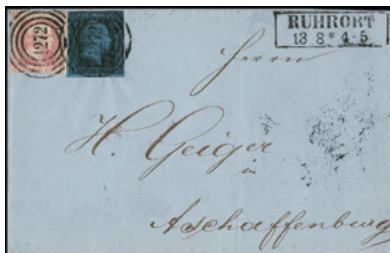 RUHRORT
13 8 * 4-5
1272
Herrn
H. Geiger
in
Aschaffenburg